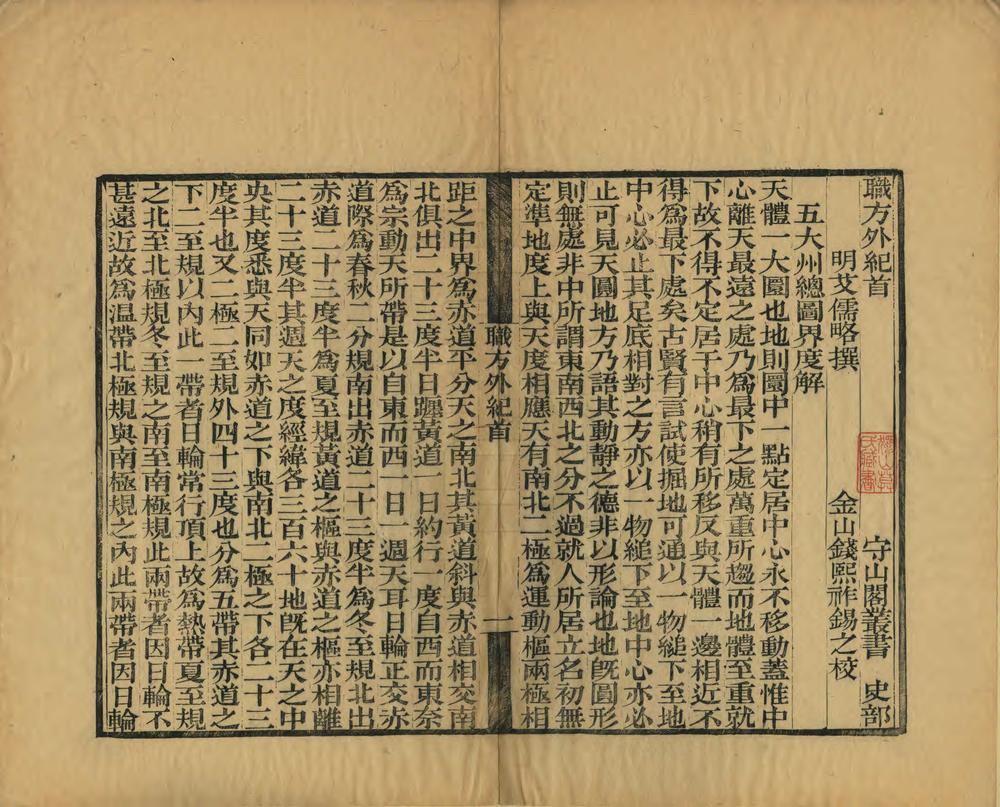 職方外紀首　守山閣叢書　史部
明艾儒略撰　金山錢熙祚錫之校
五大州總圖界度解
天體一大圜也地則圜中一點定居中心永不移動蓋惟中
心離天最遠之處乃爲最下之處萬重所趨而地體至重就
下故不得不定居于中心稍有所移反與天體一邊相近不
得爲最下處矣古賢有言試使掘地可通以一物縋下至地
中心必止其足底相對之方亦以一物縋下至地中心亦必
止可見天圓地方乃語其動靜之德非以形論也地旣圓形
則無處非中所謂東南西北之分不過就人所居立名初無
定準地度上與天度相應天有南北二極爲運動樞兩極相
職方外紀首　一
距之中界爲赤道平分天之南北其黃道斜與赤道相交南
北俱出二十三度半日躔黃道一日約行一度自西而東奈
爲宗動天所帶是以自東而西一日一週天耳日輪正交赤
道際爲春秋二分規南出赤道二十三度半爲冬至規北出
赤道二十三度半爲夏至規黃道之樞與赤道之樞亦相離
二十三度半其週天之度經緯各三百六十地旣在天之中
央其度悉與天同如赤道之下與南北二極之下各二十三
度半也又二極二至規外四十三度也分爲五帶其赤道之
下二至規以內此一帶者日輪常行頂上故爲熱帶夏至規
之北至北極規冬至規之南至南極規此兩帶者因日輪不
甚遠近故爲溫帶北極規與南極規之內此兩帶者因日輪